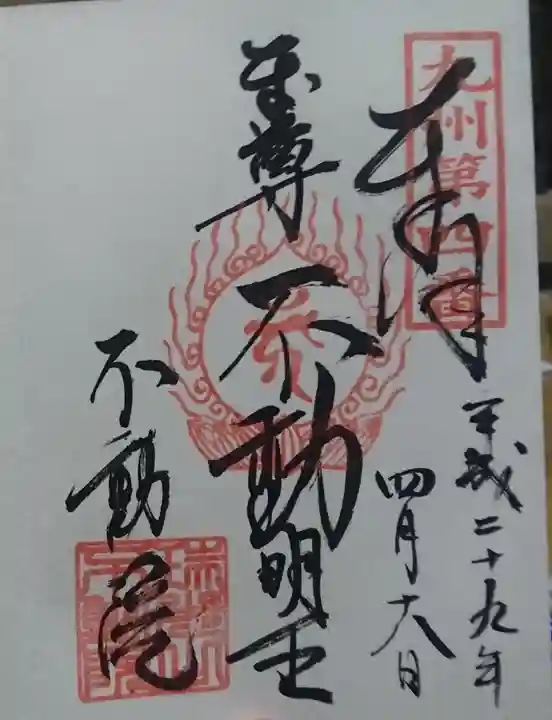 九州第四番
奉拝
平成二十九年
四月十八日
本尊不動明王
不動院